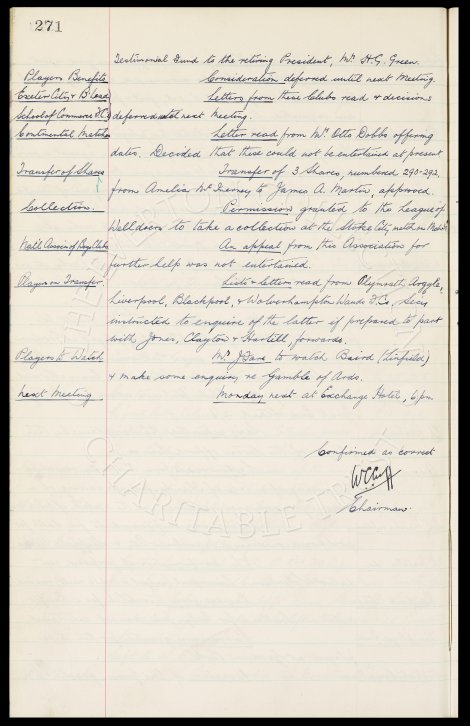 271
Testimonial Fund to the retiring President, Mr. H.G. Green.
Players Benefits Consideration deferred until next Meeting.
Exeter City & B'Load Letters from these Clubs read & decisions
School of Commerce F.C. deferred until next Meeting.
Continental Matches Letter read from Mr. Otto Dobbs offering
dates. Decided that these could not be entertained at present
Transfer of Shares Transfer of 3 Shares, numbered 290-292,
from Amelia McInerney to James A. Martin, approved.
Collection. Permission granted to the League of
Welldoers to take a collection at the Stoke City match on
Natl. Assocn of Boys Clubs An appeal from this Association for
further help was not entertained.
Players on Transfer. Lists & letters read from Plymouth Argyle,
Liverpool, Blackpool, & Wolverhampton Wands F.C. Secy
instructed to enquire of the latter if prepared to part
with Jones, Clayton & Hartill, forwards.
Players to Watch Mr. J. Dare to watch Baird (Linfield)
& make some enquiry re Gamble of Ards.
next Meeting Monday next at Exchange Hotel, 6 pm.
Confirmed as correct
W.C. Cuff
Chairman.
CHARITABLE TR